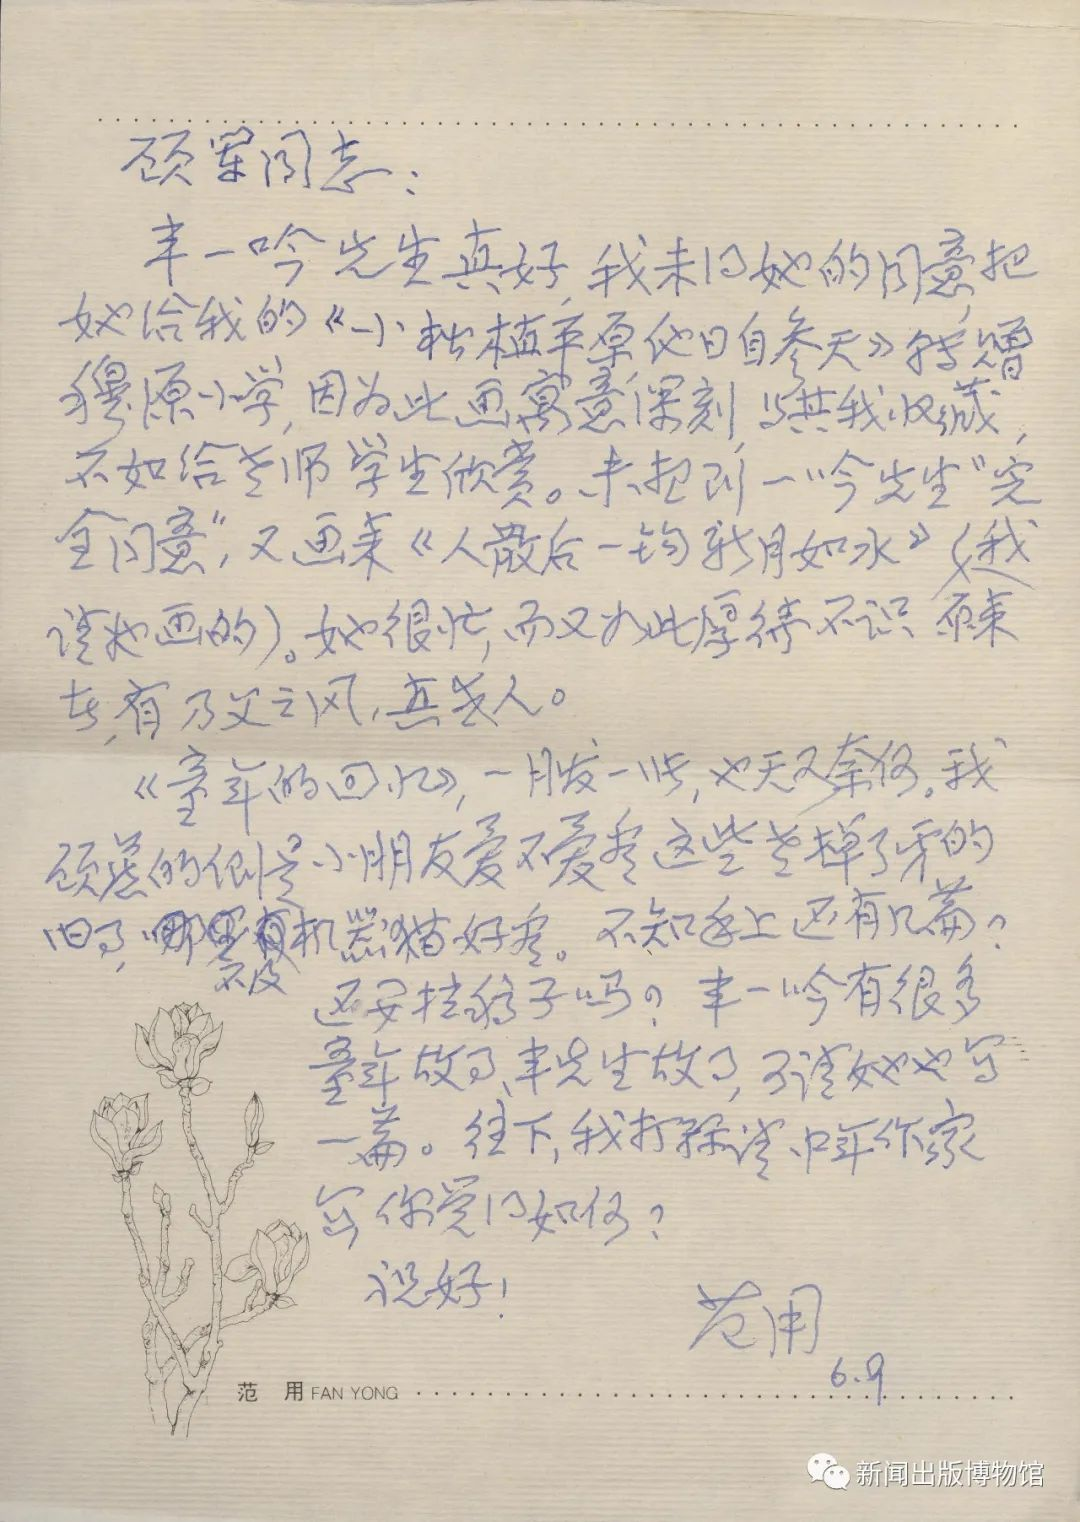 顾军同志：
丰一吟先生真好，我未得她的同意，把
她给我的《小松植平原，他日自参天》转赠
穆源小学，因为此画寓意深刻，与其我收藏，
不如给老师学生欣赏。未想到一吟先生“完
全同意”，又画来《人散后一钩新月如水》（我
请她画的）。她很忙，而又如此厚待不识
者，有乃父之风，真
人。
《童年的回忆》，一月发一些，也无可奈何。我
顾虑的倒是小朋友爱不爱看这些老掉了牙的
旧事，不及机器猫好看。不知手上还有几篇？
还要找稿子吗？丰一吟有很多
童年故事、丰先生故事，可请她也写
一篇。往下，我打算请中年作家
写，你觉得如何？
祝好！
范用
6.9
范 用 FAN YONG
新闻出版博物馆